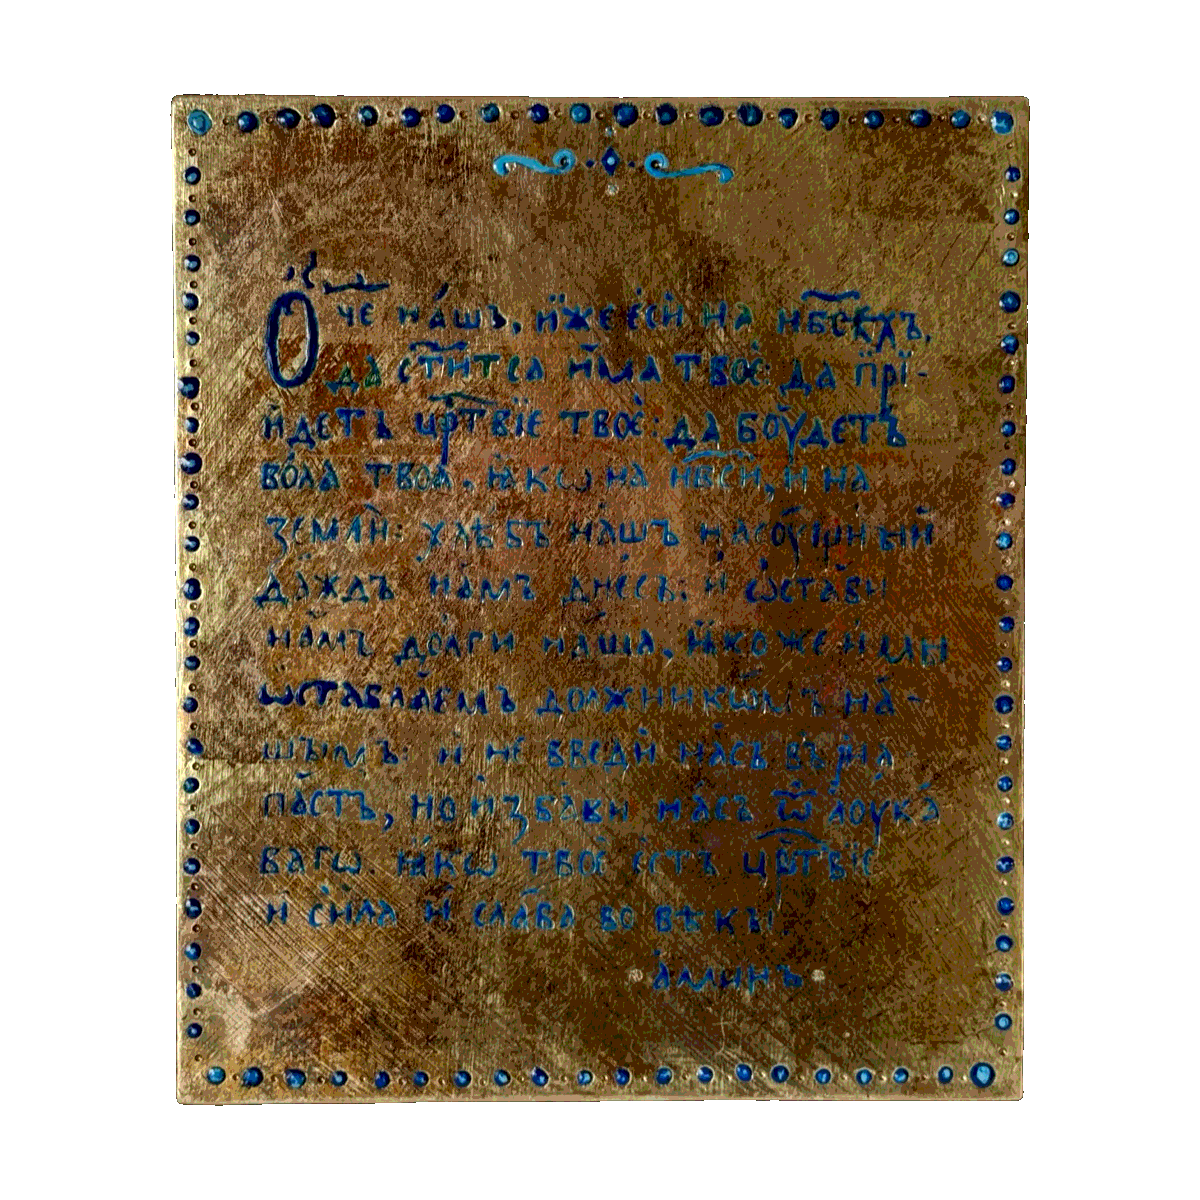 Ѻ҆́ч҃е на́шъ, и҆́же є҆сѝ на нб҃сѣхъ,
да ст҃и́тса и҆́ма твоѐ: да прїи-
и҆детъ црт҃вїе твоѐ: да бꙋ́детъ
во́ла твоа̀, ꙗ҆́кѡ на нб҃сѝ, и҆ на
землѝ: хлѣ́бъ на́шъ насоу́щный
да́ждъ на́мъ дне́съ: и҆ ѡ҆ста́ви
на́мъ до́лги на́ша, ꙗ҆́коже и҆ мы
ѡ҆ставла́емъ должникѡ́мъ на́-
шымъ: и҆ не введѝ на́съ въ на
па́стъ, но и҆зба́ви на́съ ѿ лоука́
вагѡ. ꙗ҆́кѡ твоѐ є҆́стъ црт҃вїе
и҆ си́ла и҆ сла́ва во вѣ́кы.
а҆ми́нъ